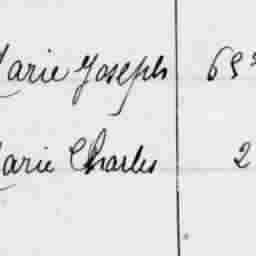 Marie Joseph 65
Marie Charles 2